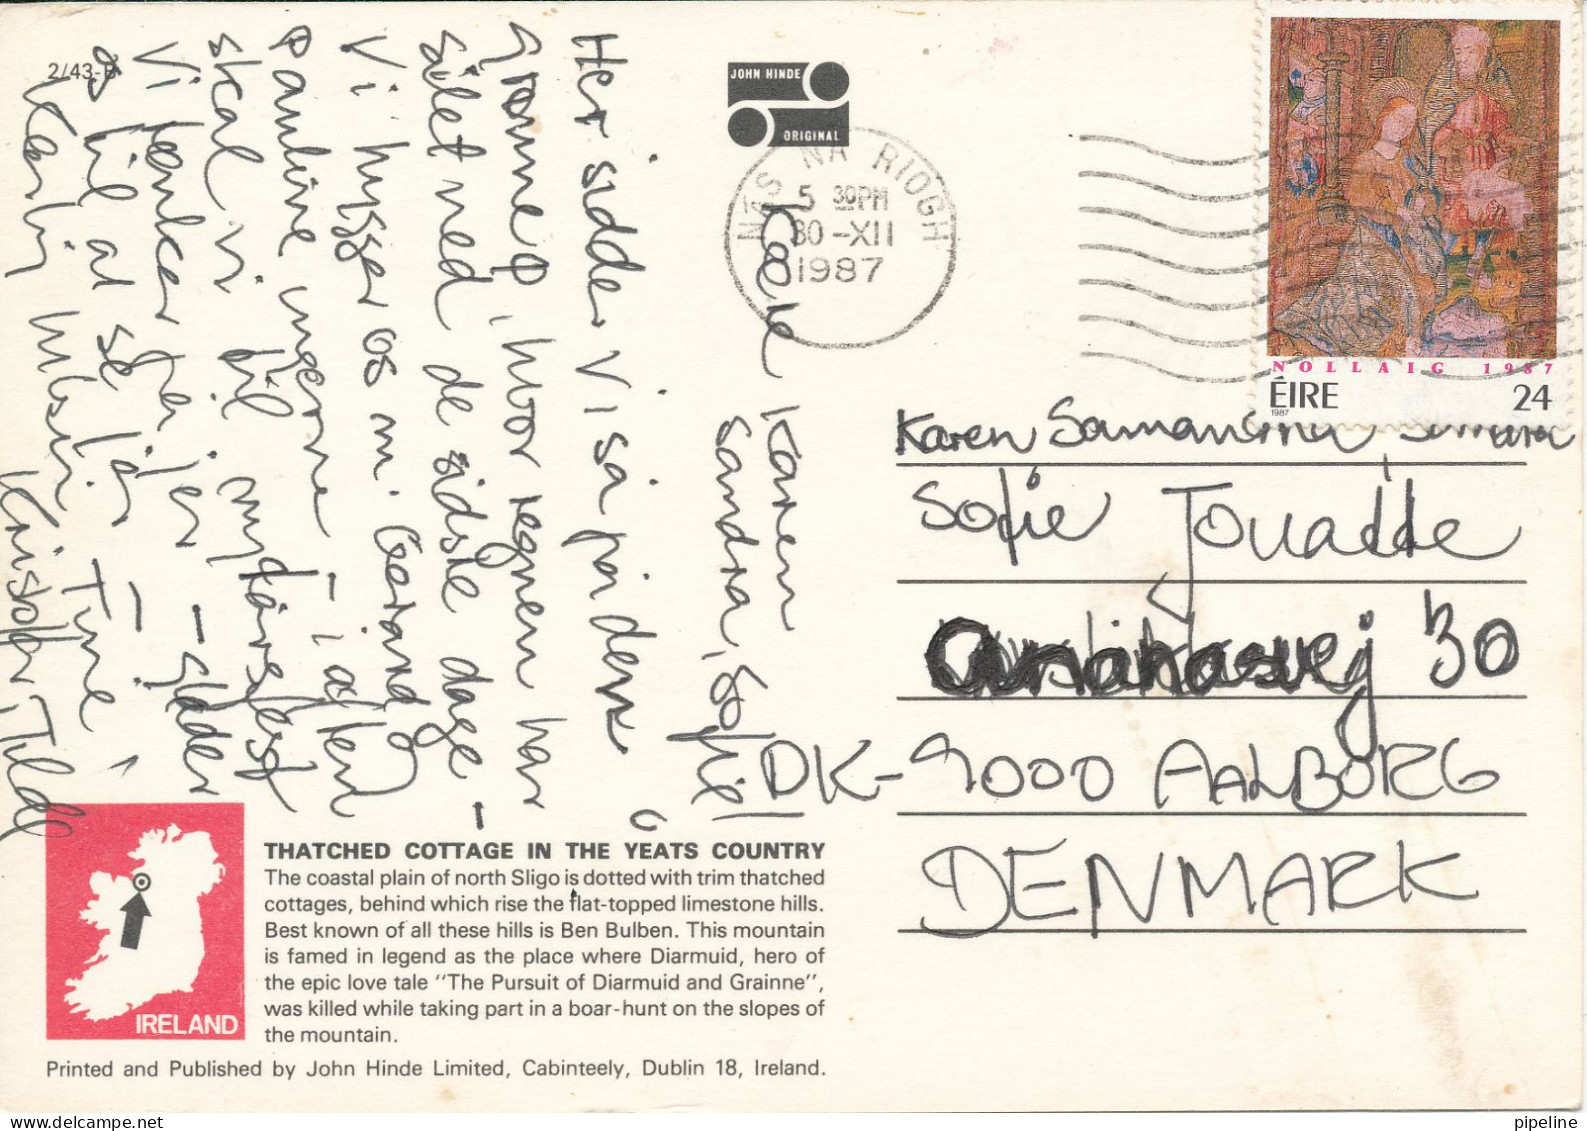 2/43-B
JOHN HINDE
ORIGINAL
NÁS NA RIOGH
5 30PM
30-XII
1987
NOLLAIG 1987
ÉIRE 24
1987
Kære Karen
Sandra, Sofie!
Her sidder vi så på den
grønne ø, hvor regnen har
silet ned de sidste dage -
Vi hygger os m. Gerard &
Pauline ungerne - i aften
skal vi til nytårsfest
Vi tænker på jer - glæder
os til at se jer
Kærlig hilsen Tine,
Kristoffer, Tilde
Karen Samantha
Sofie Jouadde
30
DK-9000 AALBORG
DENMARK
THATCHED COTTAGE IN THE YEATS COUNTRY
The coastal plain of north Sligo is dotted with trim thatched
cottages, behind which rise the flat-topped limestone hills.
Best known of all these hills is Ben Bulben. This mountain
is famed in legend as the place where Diarmuid, hero of
the epic love tale "The Pursuit of Diarmuid and Grainne",
was killed while taking part in a boar-hunt on the slopes of
the mountain.
IRELAND
Printed and Published by John Hinde Limited, Cabinteely, Dublin 18, Ireland.
pipeline